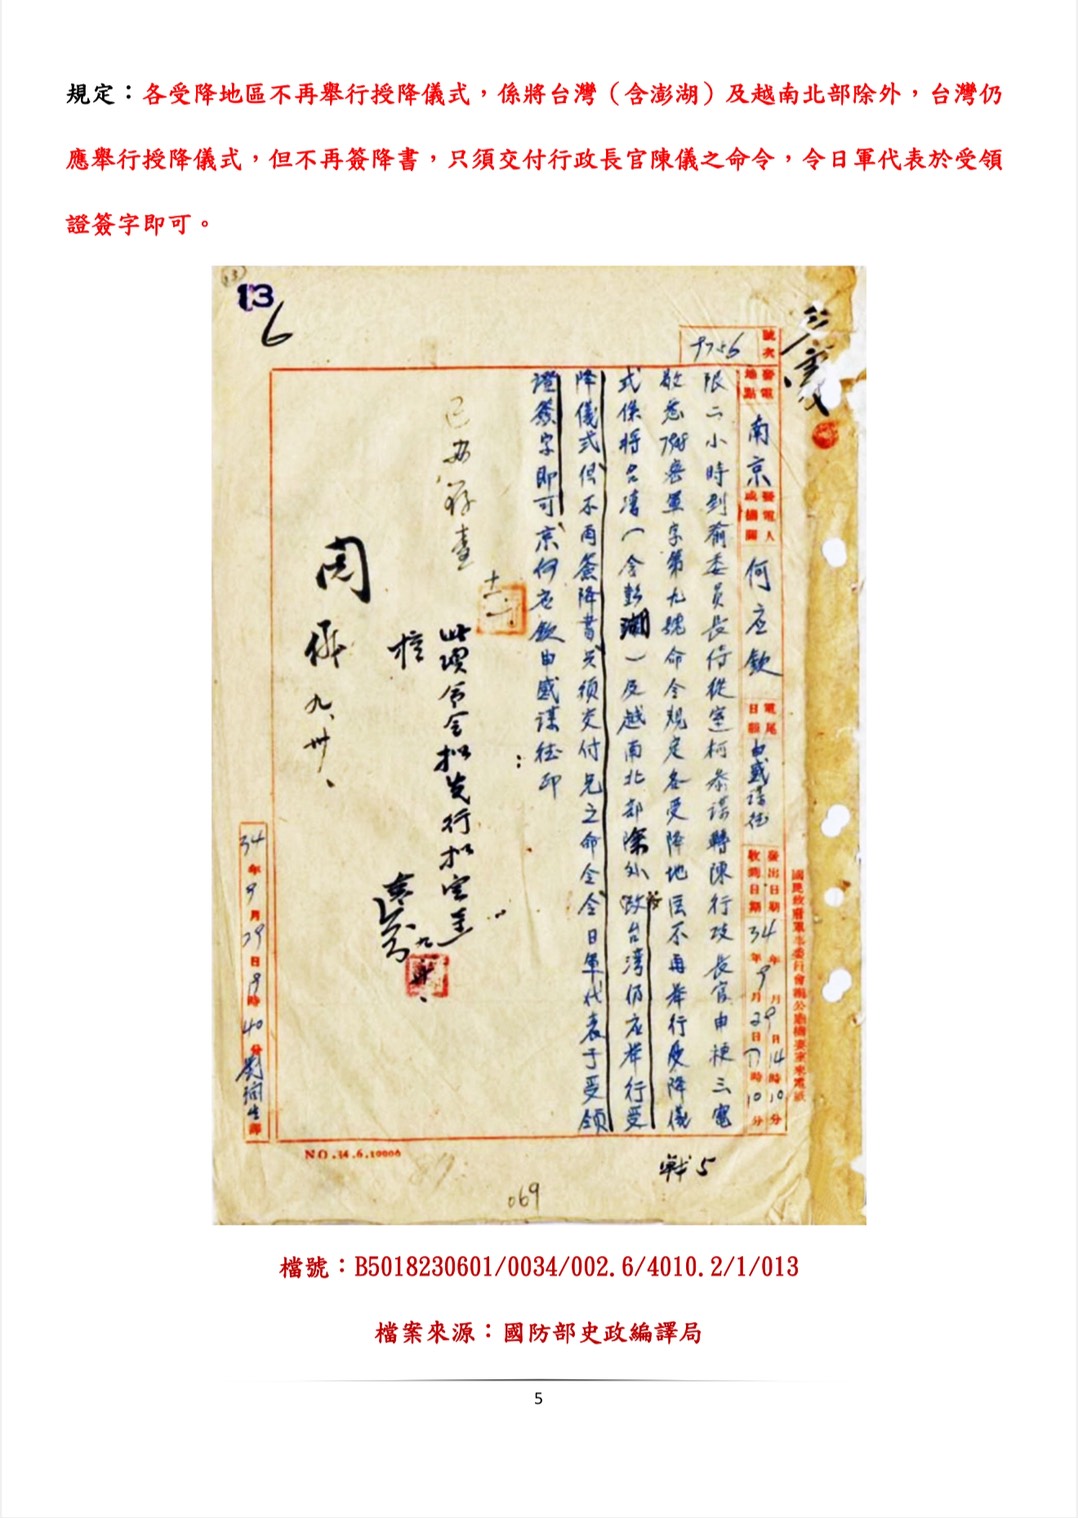 規定：各受降地區不再舉行授降儀式，係將台灣（含澎湖）及越南北部除外，台灣仍
應舉行授降儀式，但不再簽降書，只須交付行政長官陳儀之命令，令日軍代表於受領
證簽字即可。
13
6
號次
9756
發電地點
南京
發電人或機關
何应欽
電尾日韻
發出日期 34年9月 日14時10分
收到日期 34年9月29日17時10分
國民政府軍事委員會辦公廳機要室來電紙
限二小時到俞委員長侍從室柯参謀轉陳行政長官申梗三電
敬悉 密軍字第九號命令規定各受降地区不再举行受降儀
式係將台湾（含彭湖）及越南北部除外故台湾仍应举行受
降儀式但不再簽降書只須交付兄之命令令日軍代表于受領
證簽字即可京何应欽申感謀 印
此項命令擬
周
九、卅、
34年9月29日19時40分
譯
NO.34.6.10000
5
069
檔號：B5018230601/0034/002.6/4010.2/1/013
檔案來源：國防部史政編譯局
5